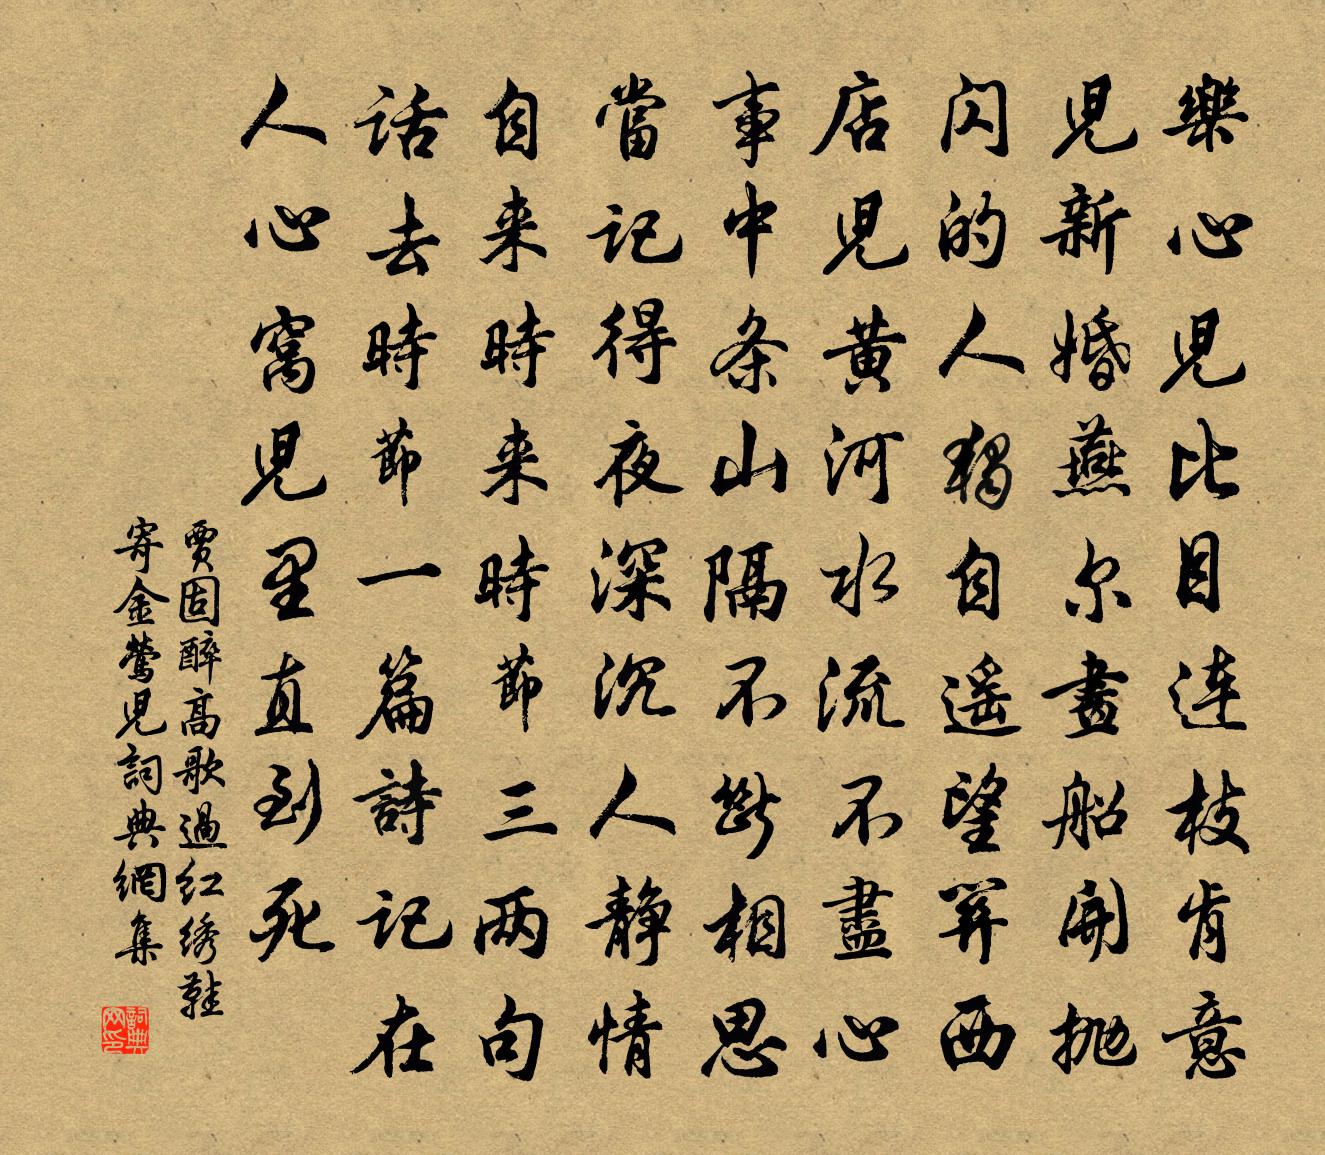 樂心兒比目連枝肯意
兒新婚燕尔畫船開抛
閃的人獨自遥望關西
店兒黄河水流不盡心
事中条山隔不斷相思
當記得夜深沉人静情
自来時来時節三两句
話去時節一篇詩記在
人心窩兒里直到死
賈固醉高歌過红绣鞋
寄金鶯兒詞典網集
詞典网印